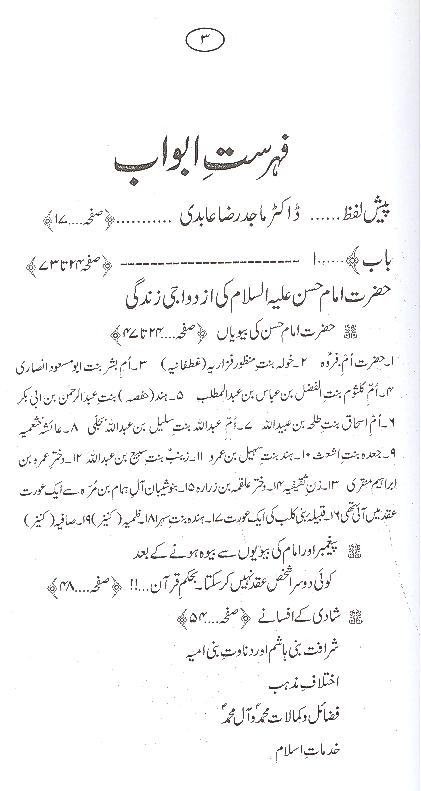 ۳
فہرستِ ابواب
پیش لفظ...... ڈاکٹر ماجد رضا عابدی ...........﴿صفحہ....۱۷﴾
باب ﴾......۱ ------------------------ ﴿صفحہ ۲۴ تا ۷۳﴾
حضرت امام حسن علیہ السلام کی ازدواجی زندگی
حضرت امام حسن کی بیویاں ﴿صفحہ....۲۴ تا ۴۷﴾
۱۔حضرت اُمِّ فروہ ۲۔ خولہ بنتِ منظور فزاریہ (غطفانیہ) ۳۔ اُمِّ بشر بنت ابو مسعود انصاری
۴۔ اُمِّ کلثوم بنتِ الفضل بن عباس بن عبدالمطلب ۵۔ ہند (حفصہ) بنت عبدالرحمن بن ابی بکر
۶۔ اُمِّ اسحاق بنتِ طلحہ بن عبیداللہ ۷۔ اُمِّ عبداللہ بنت سلیل بن عبداللہ بجلّی ۸۔ عائشہ خثعمیہ
۹۔ جعدہ بنت اشعث ۱۰۔ ہند بنت سہیل بن عمرو ۱۱۔ زینب بنت سبیع بن عبداللہ ۱۲۔ دختر عمرو بن
ابراہیم منقری ۱۳۔ زنِ ثقیفیہ ۱۴۔ دختر علقمہ بن زرارہ ۱۵۔ بنو شیبان آلِ ہمام بن مُرّہ سے ایک عورت
عقد میں آئی تھی ۱۶۔ قبیلۂ بنی کلب کی ایک عورت ۱۷۔ ہندہ بنت سہرا ۱۸۔ ظمیہ (کنیز) ۱۹۔ صافیہ (کنیز)
پیغمبر اور امام کی بیویوں سے بیوہ ہونے کے بعد
کوئی دوسرا شخص عقد نہیں کر سکتا۔ بحکم قرآن...!! ﴿صفحہ....۴۸﴾
شادی کے افسانے ﴿صفحہ....۵۴﴾
شرافت بنی ہاشم اور دناوتِ بنی امیہ
اختلافِ مذہب
فضائل و کمالات محمدؐ و آلِ محمدؐ
خدماتِ اسلام